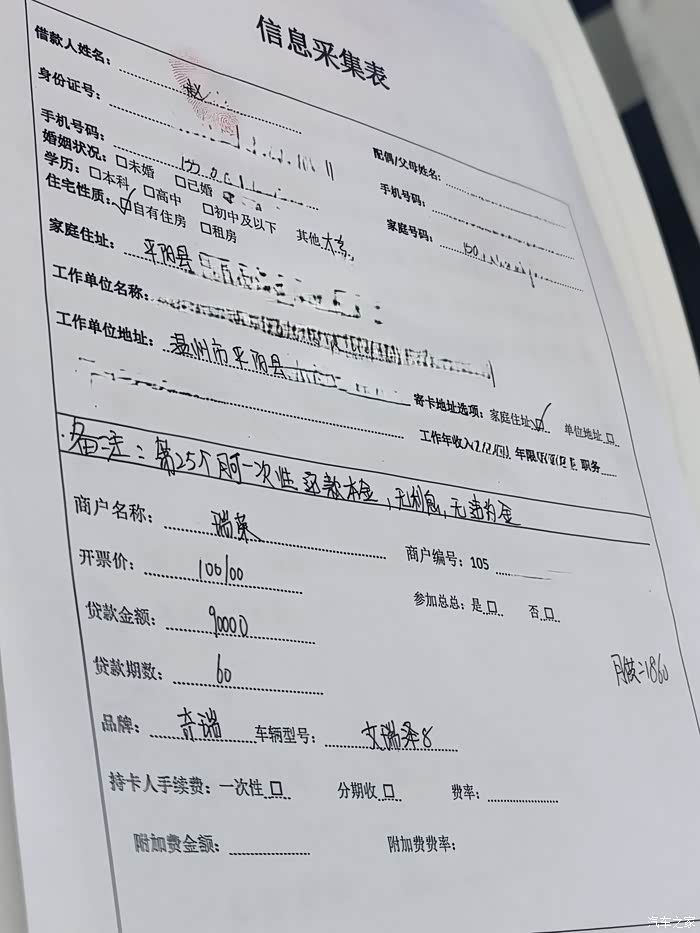 信息采集表
借款人姓名： 赵
身份证号：
配偶/父母姓名：
手机号码：
手机号码：
婚姻状况：□未婚 □已婚
学历：□本科 □高中 □初中及以下 其他 大专
家庭号码：
住宅性质：☑自有住房 □租房
家庭住址： 平阳县
工作单位名称：
工作单位地址： 温州市平阳县
寄卡地址选项：家庭住址☑ 单位地址□
工作年收入 年限 职务
备注：第25个月可一次性还款本金，无利息，无违约金
商户名称： 瑞莱
商户编号：105
开票价： 100100
参加总总：是□ 否□
贷款金额： 90000
贷款期数： 60
月供=1860
品牌： 奇瑞 车辆型号： 艾瑞泽8
持卡人手续费：一次性□ 分期收□ 费率：
附加费金额： 附加费费率：
汽车之家